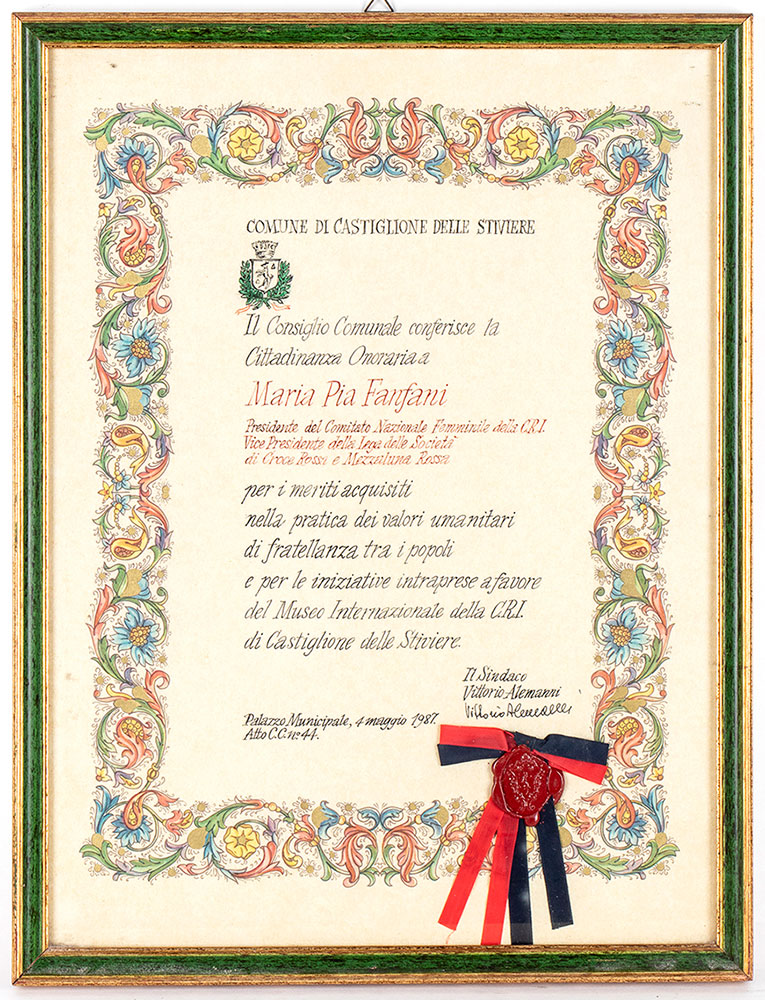 COMUNE DI CASTIGLIONE DELLE STIVIERE
Il Consiglio Comunale conferisce la
Cittadinanza Onoraria a
Maria Pia Fanfani
Presidente del Comitato Nazionale Femminile della C.R.I.
Vice Presidente della Lega delle Società
di Croce Rossa e Mezzaluna Rossa
per i meriti acquisiti
nella pratica dei valori umanitari
di fratellanza tra i popoli
e per le iniziative intraprese a favore
del Museo Internazionale della C.R.I.
di Castiglione delle Stiviere.
Il Sindaco
Vittorio Alemanni
Vittorio Alemanni
Palazzo Municipale, 4 maggio 1987.
Atto C.C. n° 44.